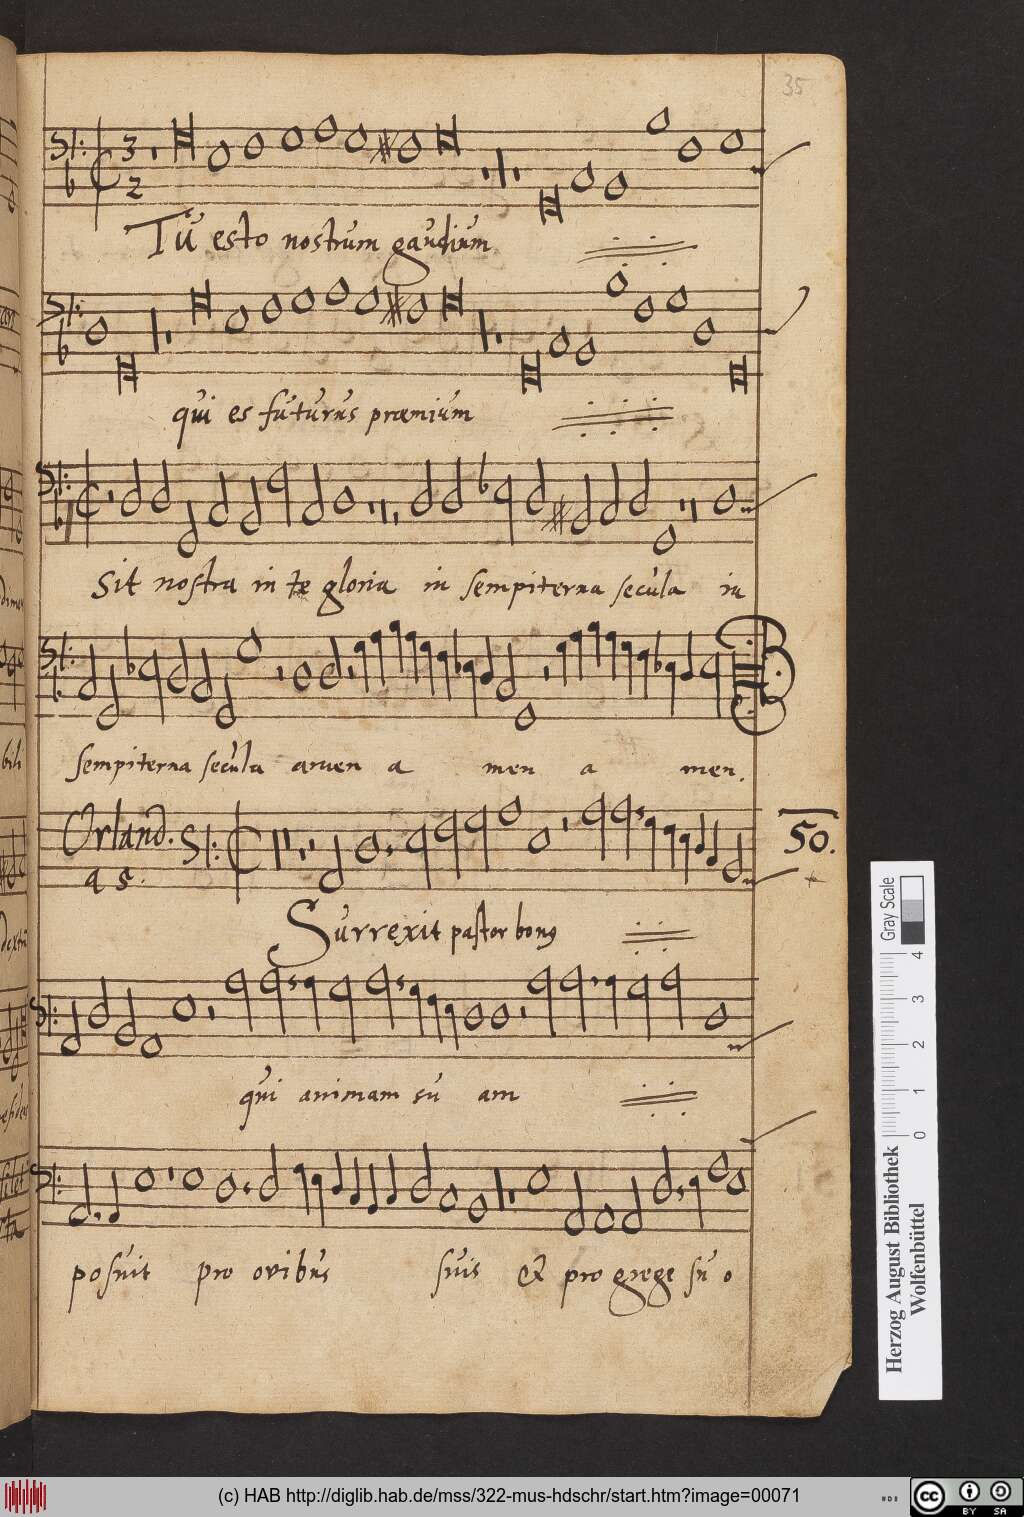 35
3
2
Tu esto nostrum gaudium
qui es futurus præmium
Sit nostra in te gloria in sempiterna secula in
sempiterna secula amen a men a men.
Orland. 50.
a 5.
Surrexit pastor bonus
qui animam su am
posuit pro ovibus suis et pro grege su o
Gray Scale
4
3
2
1
0
Herzog August Bibliothek
Wolfenbüttel
(c) HAB http://diglib.hab.de/mss/322-mus-hdschr/start.htm?image=00071
cc BY SA